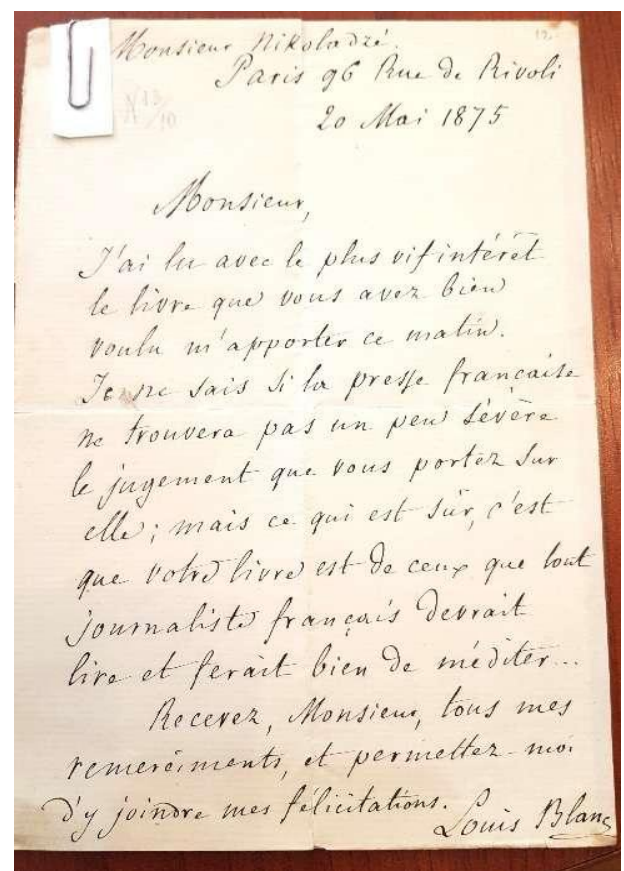 Monsieur Nikoladzé.
Paris 96 Rue de Rivoli
20 Mai 1875
N 13/10
Monsieur,
J'ai lu avec le plus vif intérêt
le livre que vous avez bien
voulu m'apporter ce matin.
Je ne sais si la presse française
ne trouvera pas un peu sévère
le jugement que vous portez sur
elle; mais ce qui est sûr, c'est
que votre livre est de ceux que tout
journaliste français devrait
lire et ferait bien de méditer...
Recevez, Monsieur, tous mes
remerciments, et permettez-moi
d'y joindre mes félicitations.
Louis Blanc